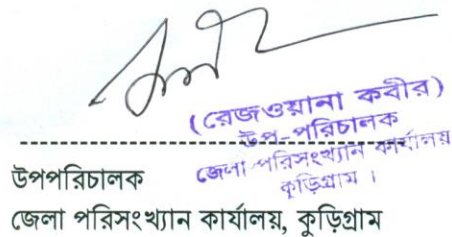 (রেজওয়ানা কবীর)
উপ-পরিচালক
জেলা পরিসংখ্যান কার্যালয়
কুড়িগ্রাম ।
উপপরিচালক
জেলা পরিসংখ্যান কার্যালয়, কুড়িগ্রাম